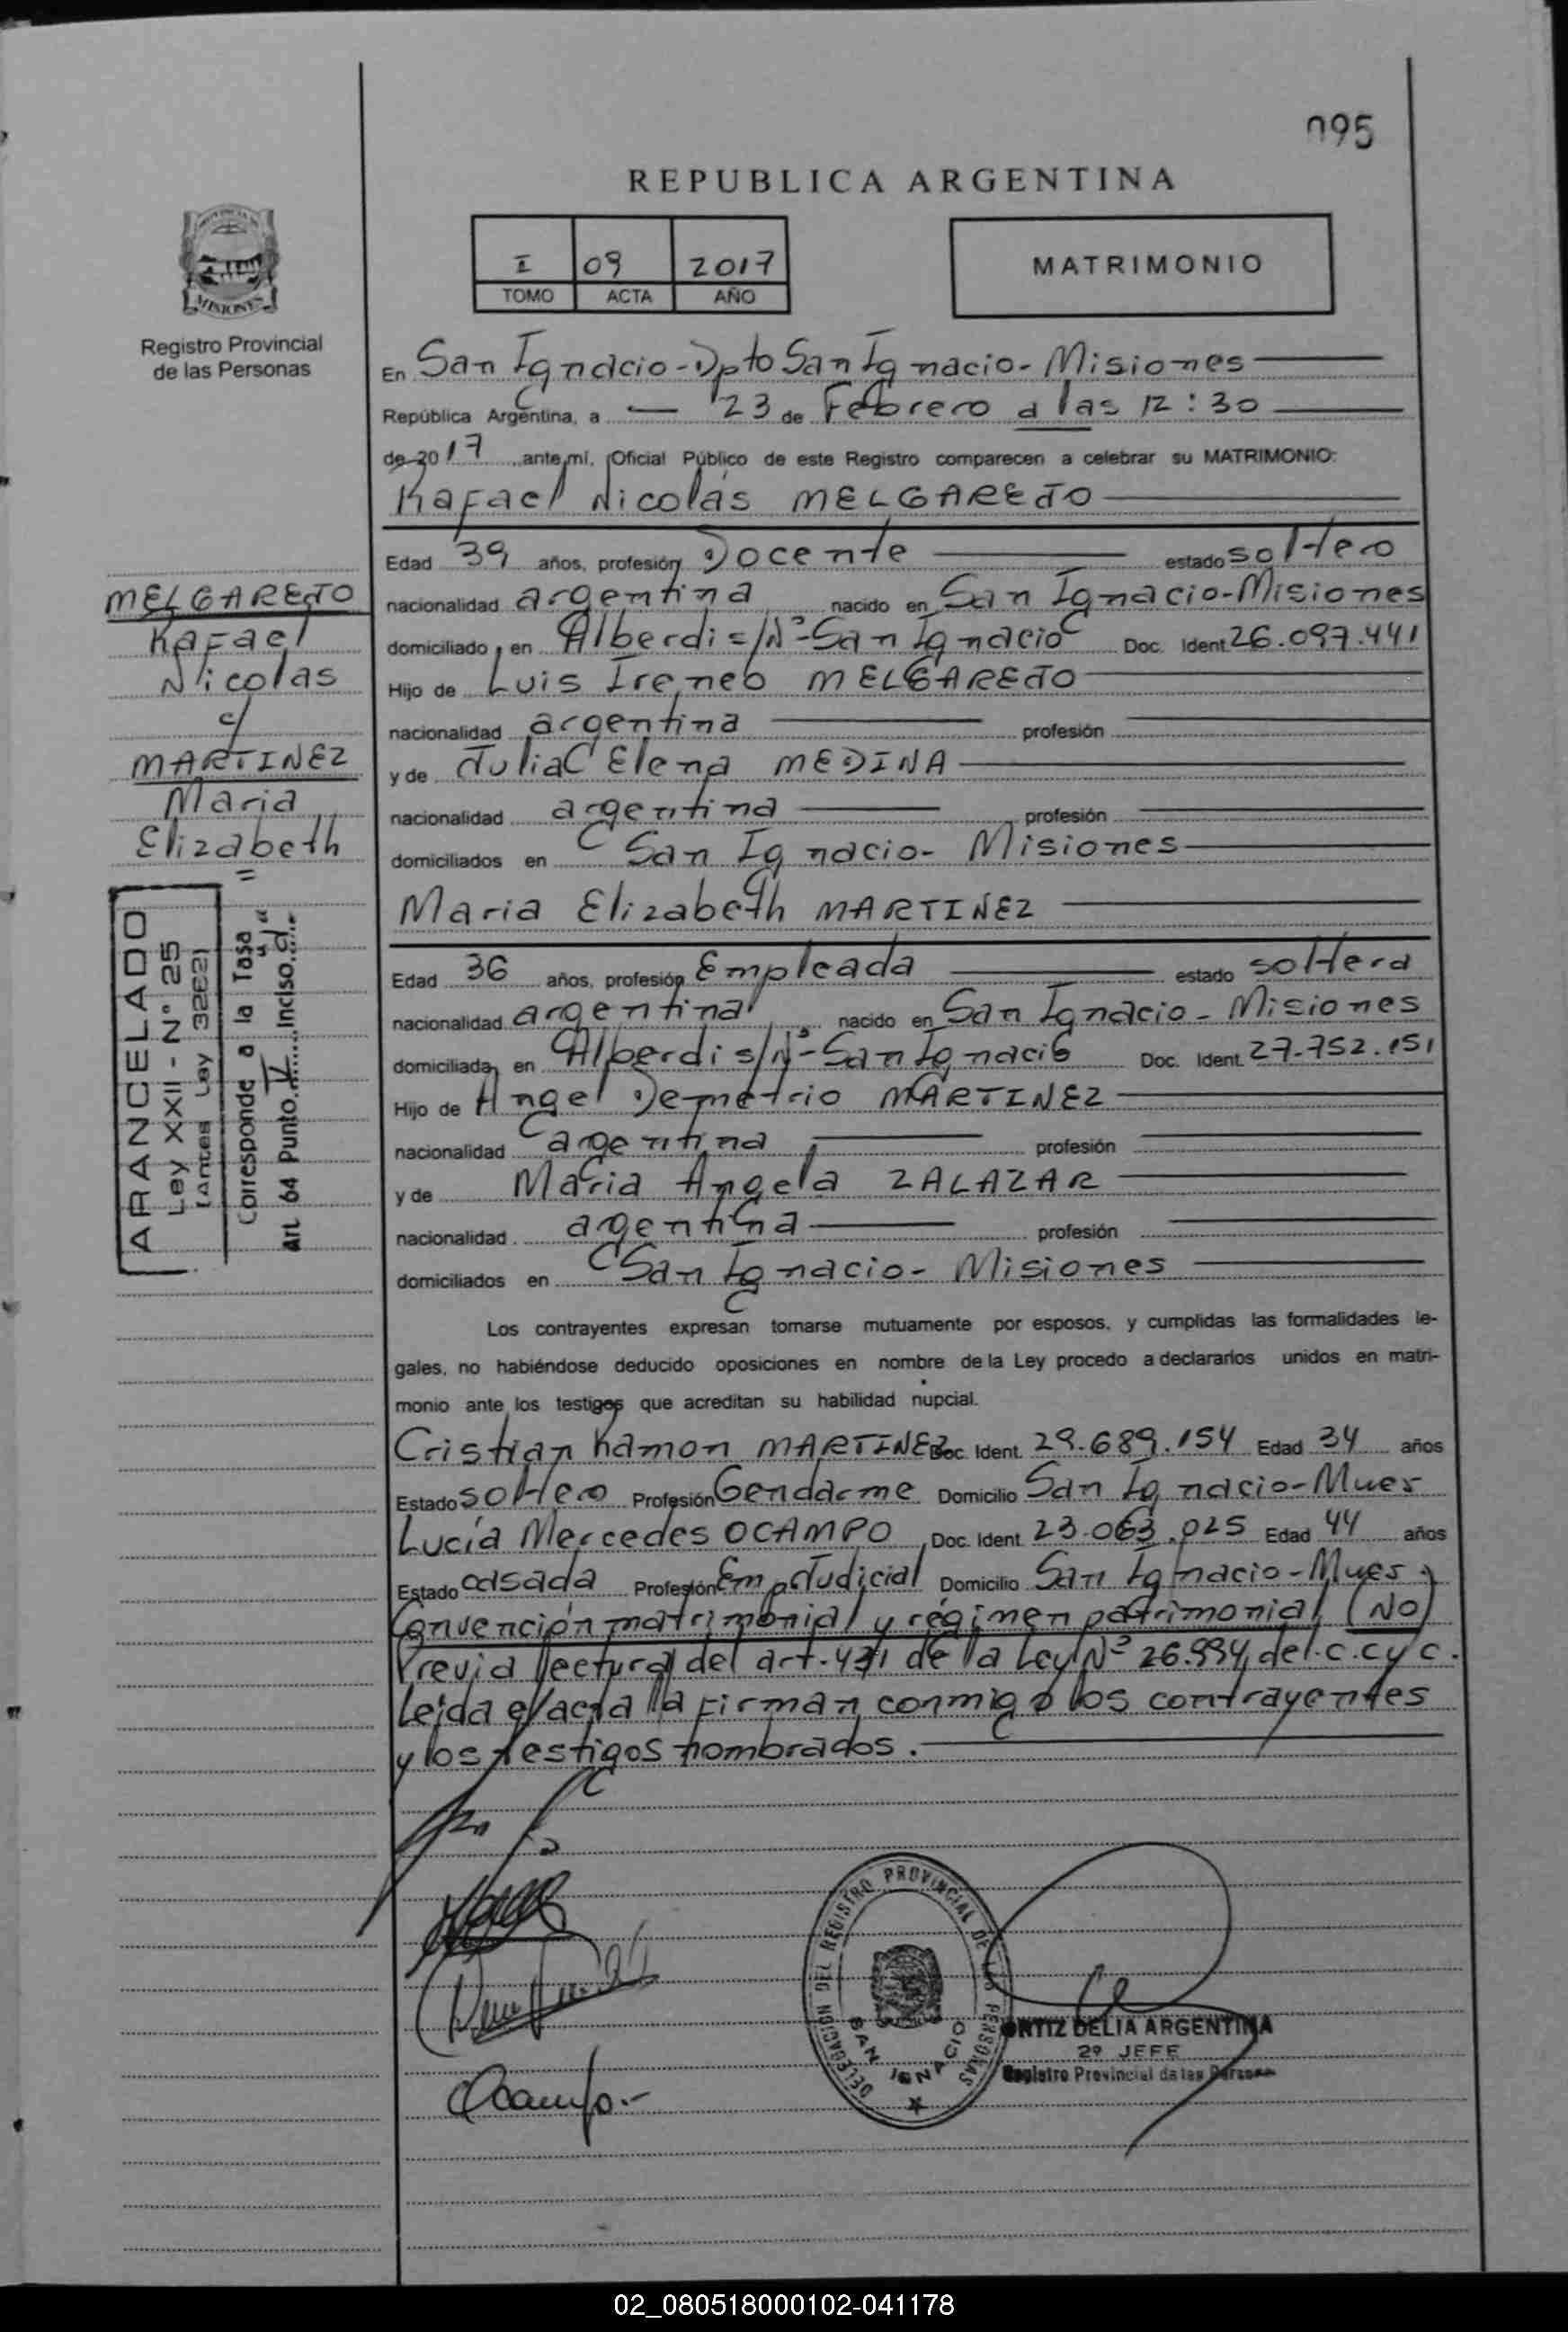 095
REPUBLICA ARGENTINA
I 09 2017
TOMO ACTA AÑO
MATRIMONIO
MISIONES
Registro Provincial
de las Personas
En San Ignacio - Dpto San Ignacio - Misiones
República Argentina, a 23 de Febrero a las 12:30
de 2017, ante mí, Oficial Público de este Registro comparecen a celebrar su MATRIMONIO:
Rafael Nicolás MELGAREJO
Edad 39 años, profesión Docente estado soltero
nacionalidad argentina nacido en San Ignacio - Misiones
domiciliado en Alberdi s/Nº - San Ignacio Doc. Ident. 26.097.441
Hijo de Luis Ireneo MELGAREJO
nacionalidad argentina profesión
y de Julia Elena MEDINA
nacionalidad argentina profesión
domiciliados en San Ignacio - Misiones
Maria Elizabeth MARTINEZ
Edad 36 años, profesión Empleada estado soltera
nacionalidad argentina nacido en San Ignacio - Misiones
domiciliada en Alberdi s/Nº - San Ignacio Doc. Ident. 27.752.151
Hijo de Angel Demetrio MARTINEZ
nacionalidad argentina profesión
y de Maria Angela ZALAZAR
nacionalidad argentina profesión
domiciliados en San Ignacio - Misiones
Los contrayentes expresan tomarse mutuamente por esposos, y cumplidas las formalidades le-
gales, no habiéndose deducido oposiciones en nombre de la Ley procedo a declararlos unidos en matri-
monio ante los testigos que acreditan su habilidad nupcial.
Cristian Ramon MARTINEZ Doc. Ident. 29.689.154 Edad 34 años
Estado soltero Profesión Gendarme Domicilio San Ignacio - Mnes
Lucía Mercedes OCAMPO Doc. Ident. 23.063.025 Edad 44 años
Estado casada Profesión Emp Judicial Domicilio San Ignacio - Mnes.
Convención matrimonial y régimen patrimonial (NO)
Previa lectura del art. 431 de la Ley Nº 26.994, del. C. C y C.
Leída el acta la firman conmigo los contrayentes
y los testigos nombrados.
MELGAREJO
Rafael
Nicolas
c/
MARTINEZ
Maria
Elizabeth
=
ARANCELADO
Ley XXII - N° 25
(Antes Ley 3262)
Corresponde a la Tasa
Art. 64 Punto IV Inciso "d"
Ocampo.-
DELEGACION DEL REGISTRO PROVINCIAL DE LAS PERSONAS
SAN IGNACIO
ORTIZ DELIA ARGENTINA
2º JEFE
Registro Provincial de las Personas
02_080518000102-041178